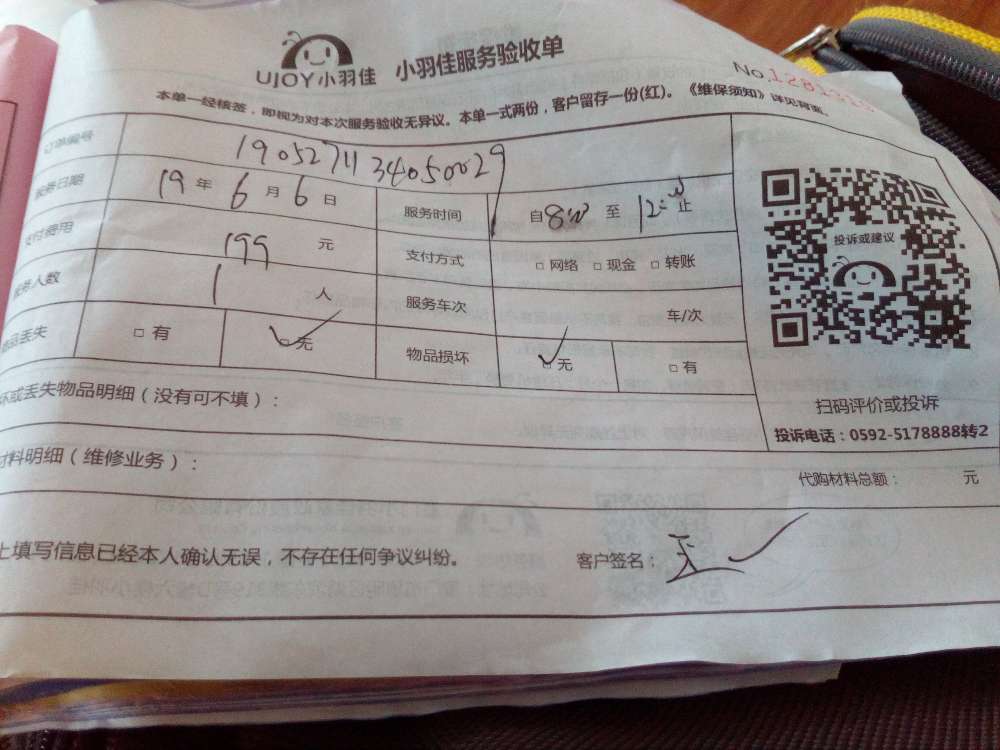 UJOY小羽佳 小羽佳服务验收单
No.128131
本单一经核签，即视为对本次服务验收无异议。本单一式两份，客户留存一份(红)。《维保须知》详见背面。
订单编号 1905271134050029
服务日期 19年6月6日 服务时间 自8:00至12:00止
支付费用 199元 支付方式 □网络 □现金 □转账
服务人数 1人 服务车次 车/次
物品丢失 □有 ✓□无 物品损坏 ✓□无 □有
投诉或建议
扫码评价或投诉
投诉电话：0592-5178888转2
坏或丢失物品明细（没有可不填）：
材料明细（维修业务）：
代购材料总额： 元
上填写信息已经本人确认无误，不存在任何争议纠纷。 客户签名：